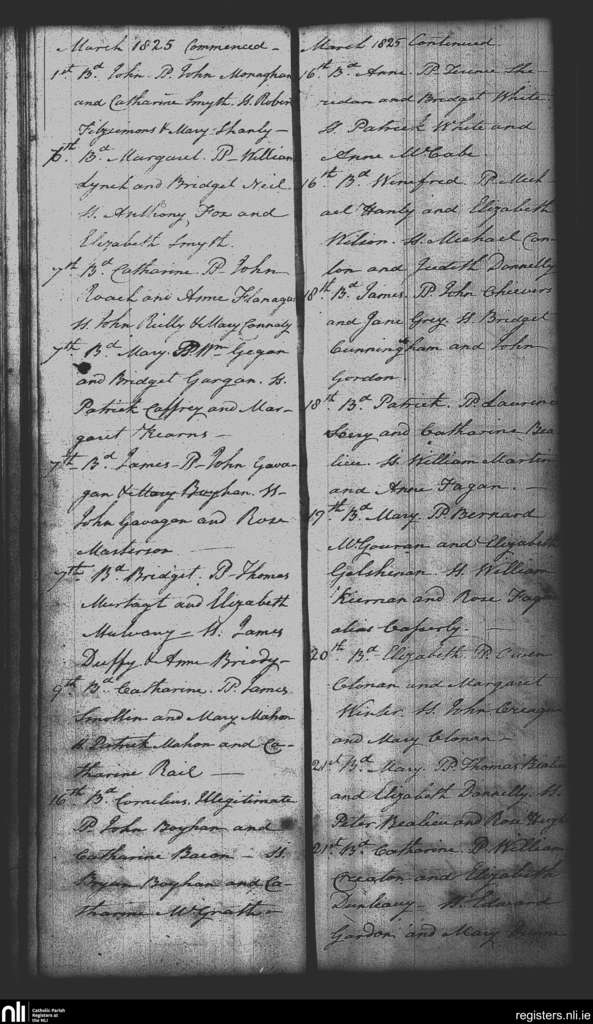 March 1825 Commenced -
1st Bd John. P John Monaghan
and Catharine Smyth. S. Robin
Fitzsemons & Mary Shanly -
6th. Bd Margaret. P - William
Lynch and Bridget Neil
S. Anthony Fox and
Elizabeth Smyth.
7th Bd Catharine. P. John
Roach and Anne Flanagan
S John Reilly & Mary Connoly
7th. Bd Mary. P Wm Gegan
and Bridget Gargan. S.
Patrick Caffrey and Mar-
garet Kearns -
7th Bd James - P - John Gava-
gan & Mary Boyhan. S -
John Gavagan and Rose
Masterson -
7th. Bd Bridget. P - Thomas
Murtagt and Elizabeth
Mulvany - S. James
Duffy & Anne Briody -
9th Bd Catharine. P. James
Smollin and Mary Mahon
S Patrick Mahon and Ca-
tharine Rail -
16th Bd Cornelius. Illegitimate
P. John Boyhan and
Catharine Bacon - S.
Bryan Boyhan and Ca-
tharine McGrath -
March 1825 Continued
16th Bd Anne. P Terence She-
redan and Bridget White.
S. Patrick White and
Anne McCabe.
16th Bd Winefred. P Mich-
ael Hanly and Elizabeth
Wilson. S. Michael Con-
lon and Judeth Donnelly
18th Bd James. P John Cheevers
and Jane Grey S. Bridget
Cunningham and John
Gordon.
18th Bd Patrick. P. Laurence
and Catharine Bea-
lieu. S. William Martin
and Anne Fagan. -
19th Bd Mary. P Bernard
McGouran and Elizabeth
Galshenan. S. William
Kiernan and Rose Faga
alias Casserly. -
20th Bd Elizabeth P. Owen
Clonan and Margaret
Winter. S. John Creagan
and Mary Clonan -
21st Bd Mary. P. Thomas Bealieu
and Elizabeth Donnelly. S.
Peter Bealieu and Rose
21st Bd Catharine. P William
Creaton and Elizabeth
Dunleavy - S. Edward
Gordon and Mary
nli
Catholic Parish
Registers at
the NLI
registers.nli.ie